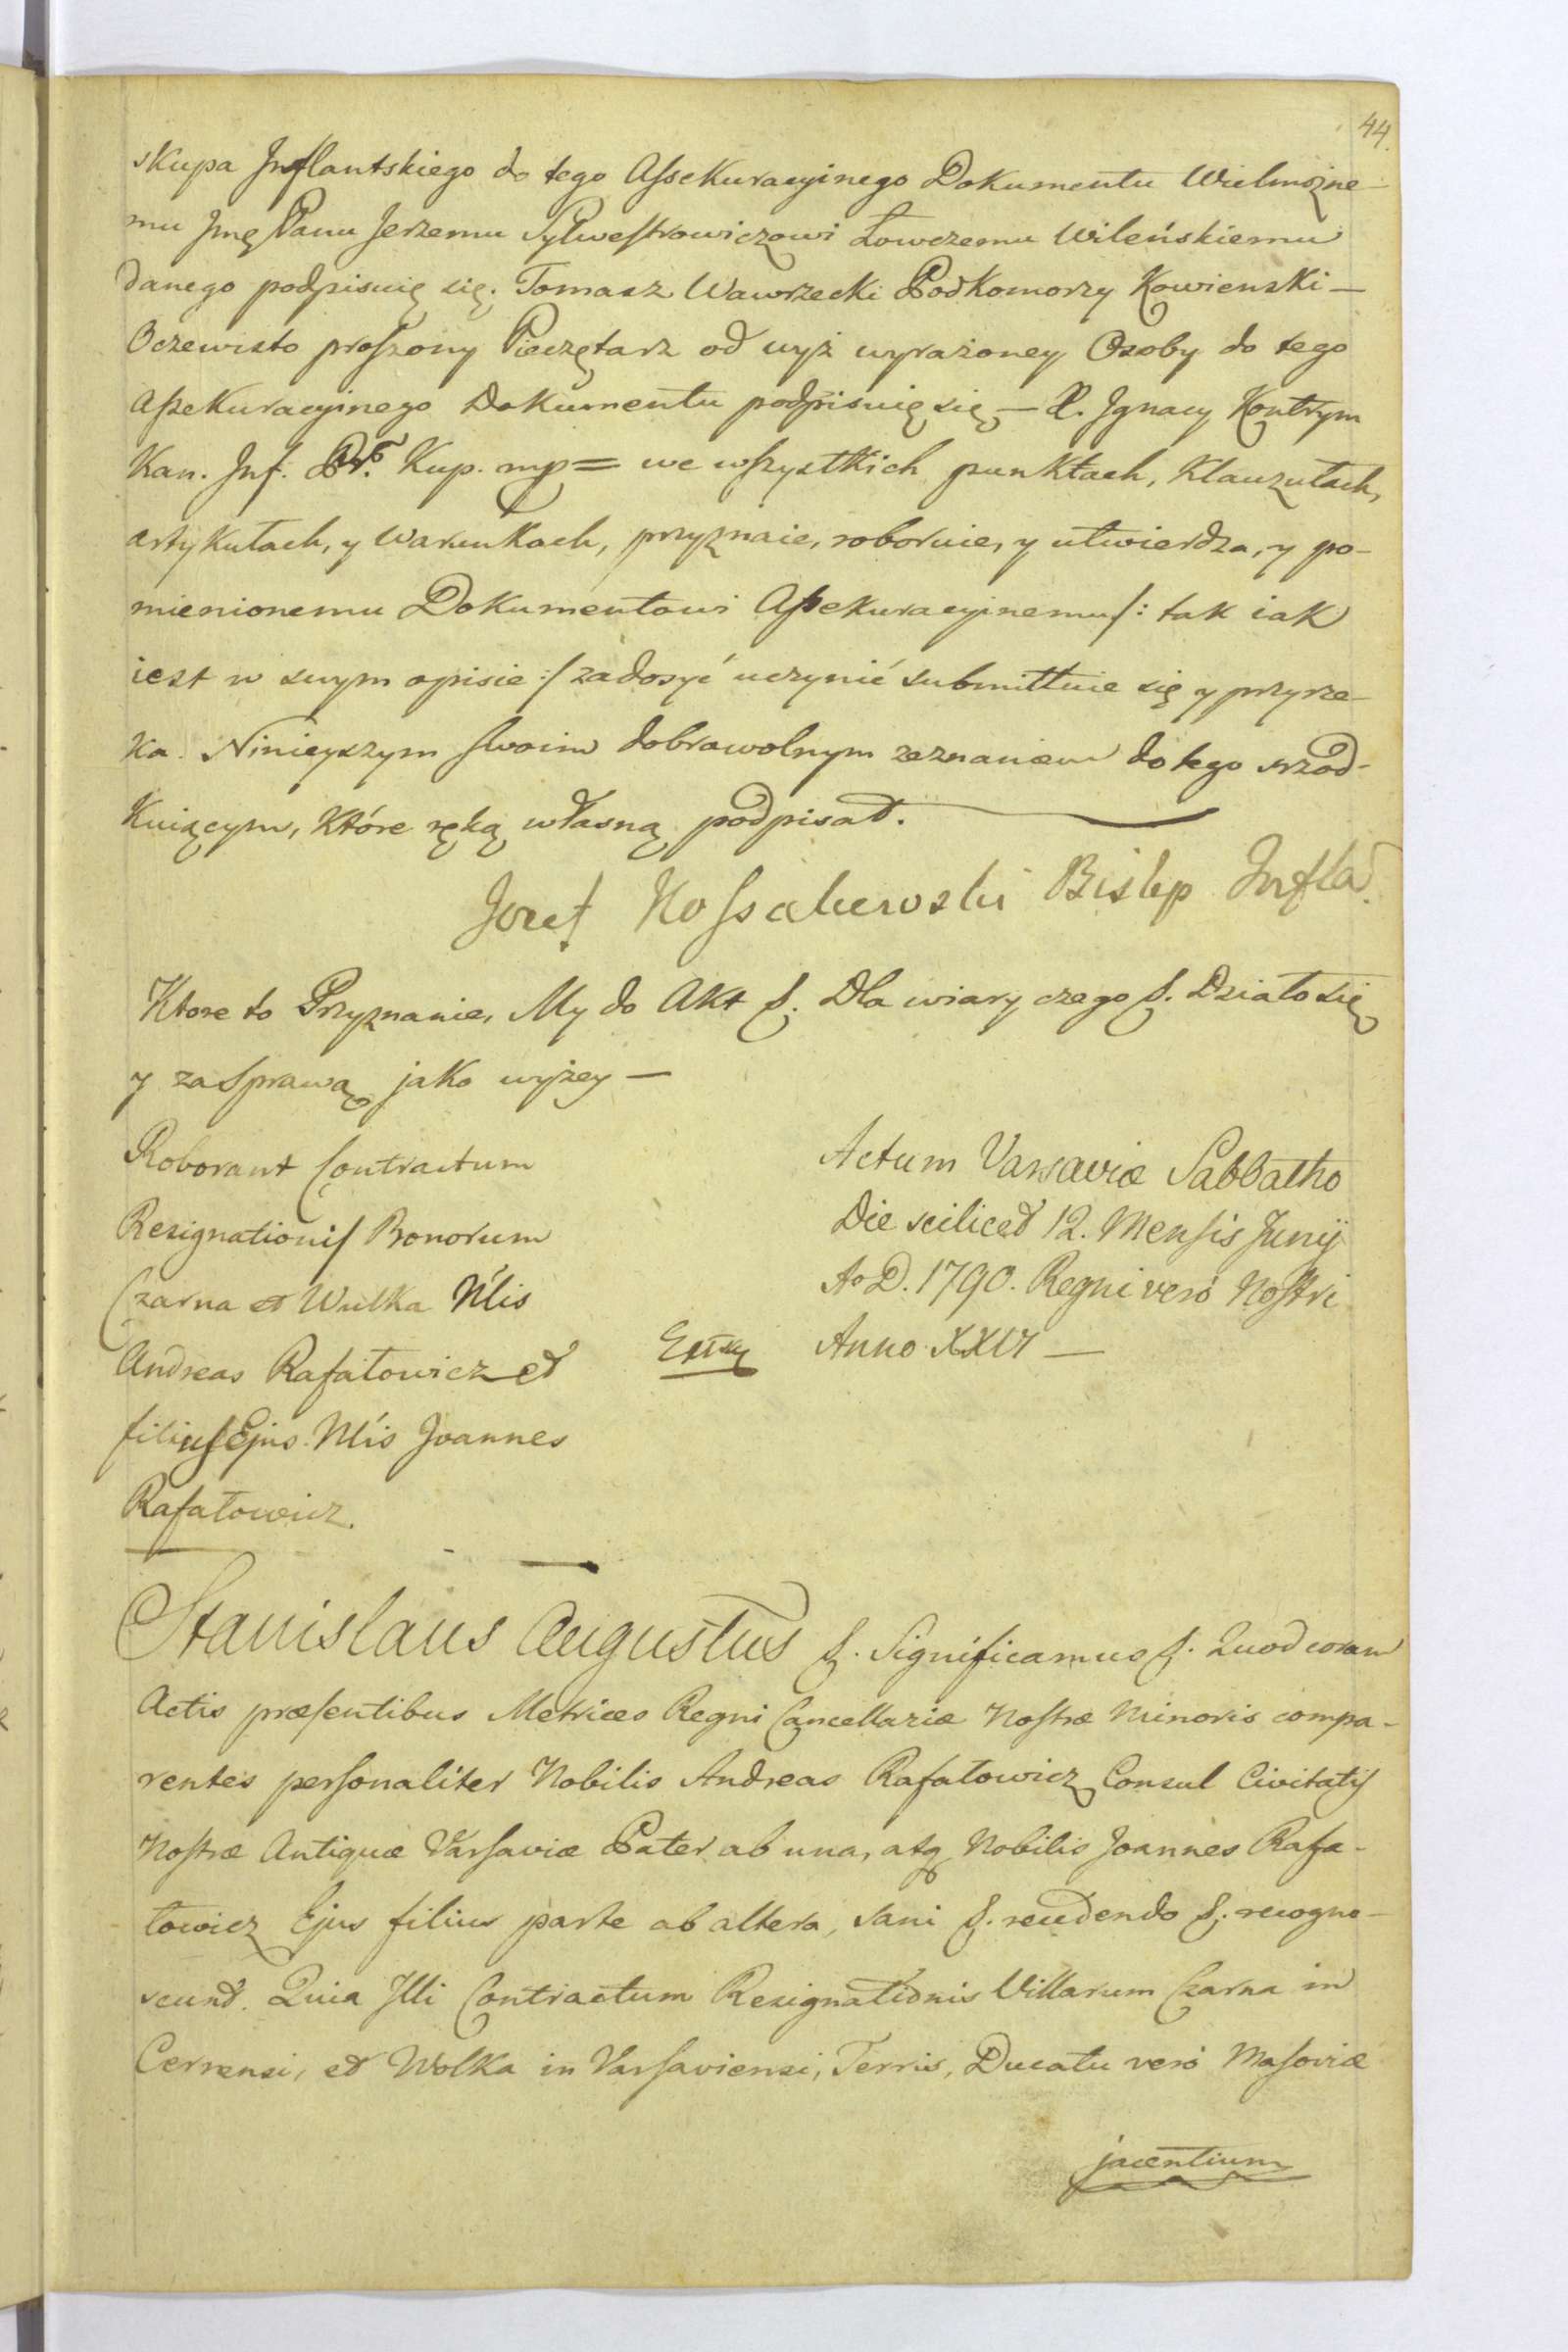 44.
skupa Inflantskiego do tego Assekuracyinego Dokumentu Wielmożne-
mu Jmę Panu Jerzemu Sylwestrowiczowi Łowczemu Wileńskiemu
danego podpisuię się. Tomasz Wawrzecki Podkomorzy Kowienski —
Oczewisto proszony Pieczętarz od wyż wyrażoney Osoby do tego
Assekuracyinego Dokumentu podpisuię się — X. Jgnacy Kontrym
Kan. Inf. Pr. Kup. mp = we wszystkich punktach, Klauzułach,
artykułach, y warunkach, przyznaie, roboruie, y utwierdza, y po-
mienionemu Dokumentowi Assekuracyinemu /: tak iak
iest w swym opisie :/ zadosyć uczynić submittuie się y przyrze-
ka. Ninieyszym swoim dobrowolnym zeznaniem do tego srzod-
kuiącym, które ręką własną podpisał.
Jozef Kossakowski Biskp Infla.
Ktore to Przyznanie, My do Akt &. Dla wiary czego &. Działo się
y za sprawą jako wyżey —
Roborant Contractum
Resignationis Bonorum
Czarna et Wulka Nlis
Andreas Rafałowicz et
filius Ejus Nlis Joannes
Rafałowicz.
Actum Varsaviæ Sabbatho
Die scilicet 12. Mensis Junij
Ao D. 1790. Regni verò Nostri
Anno XXVI —
Stanislaus Augustus &. Significamus &. Quod coram
Actis præsentibus Metrices Regni Cancellariæ Nostræ Minoris compa-
rentes personaliter Nobilis Andreas Rafałowicz Consul Civitatis
Nostræ Antiquæ Varsaviæ Pater ab una, atq Nobilis Joannes Rafa-
łowicz Ejus filius parte ab altera, sani &. recedendo &. recogno-
scunt. Quia Illi Contractum Resignationis Villarum Czarna in
Cernensi, et Wolka in Varsaviensi, Terris, Ducatu verò Masoviæ
jacentium